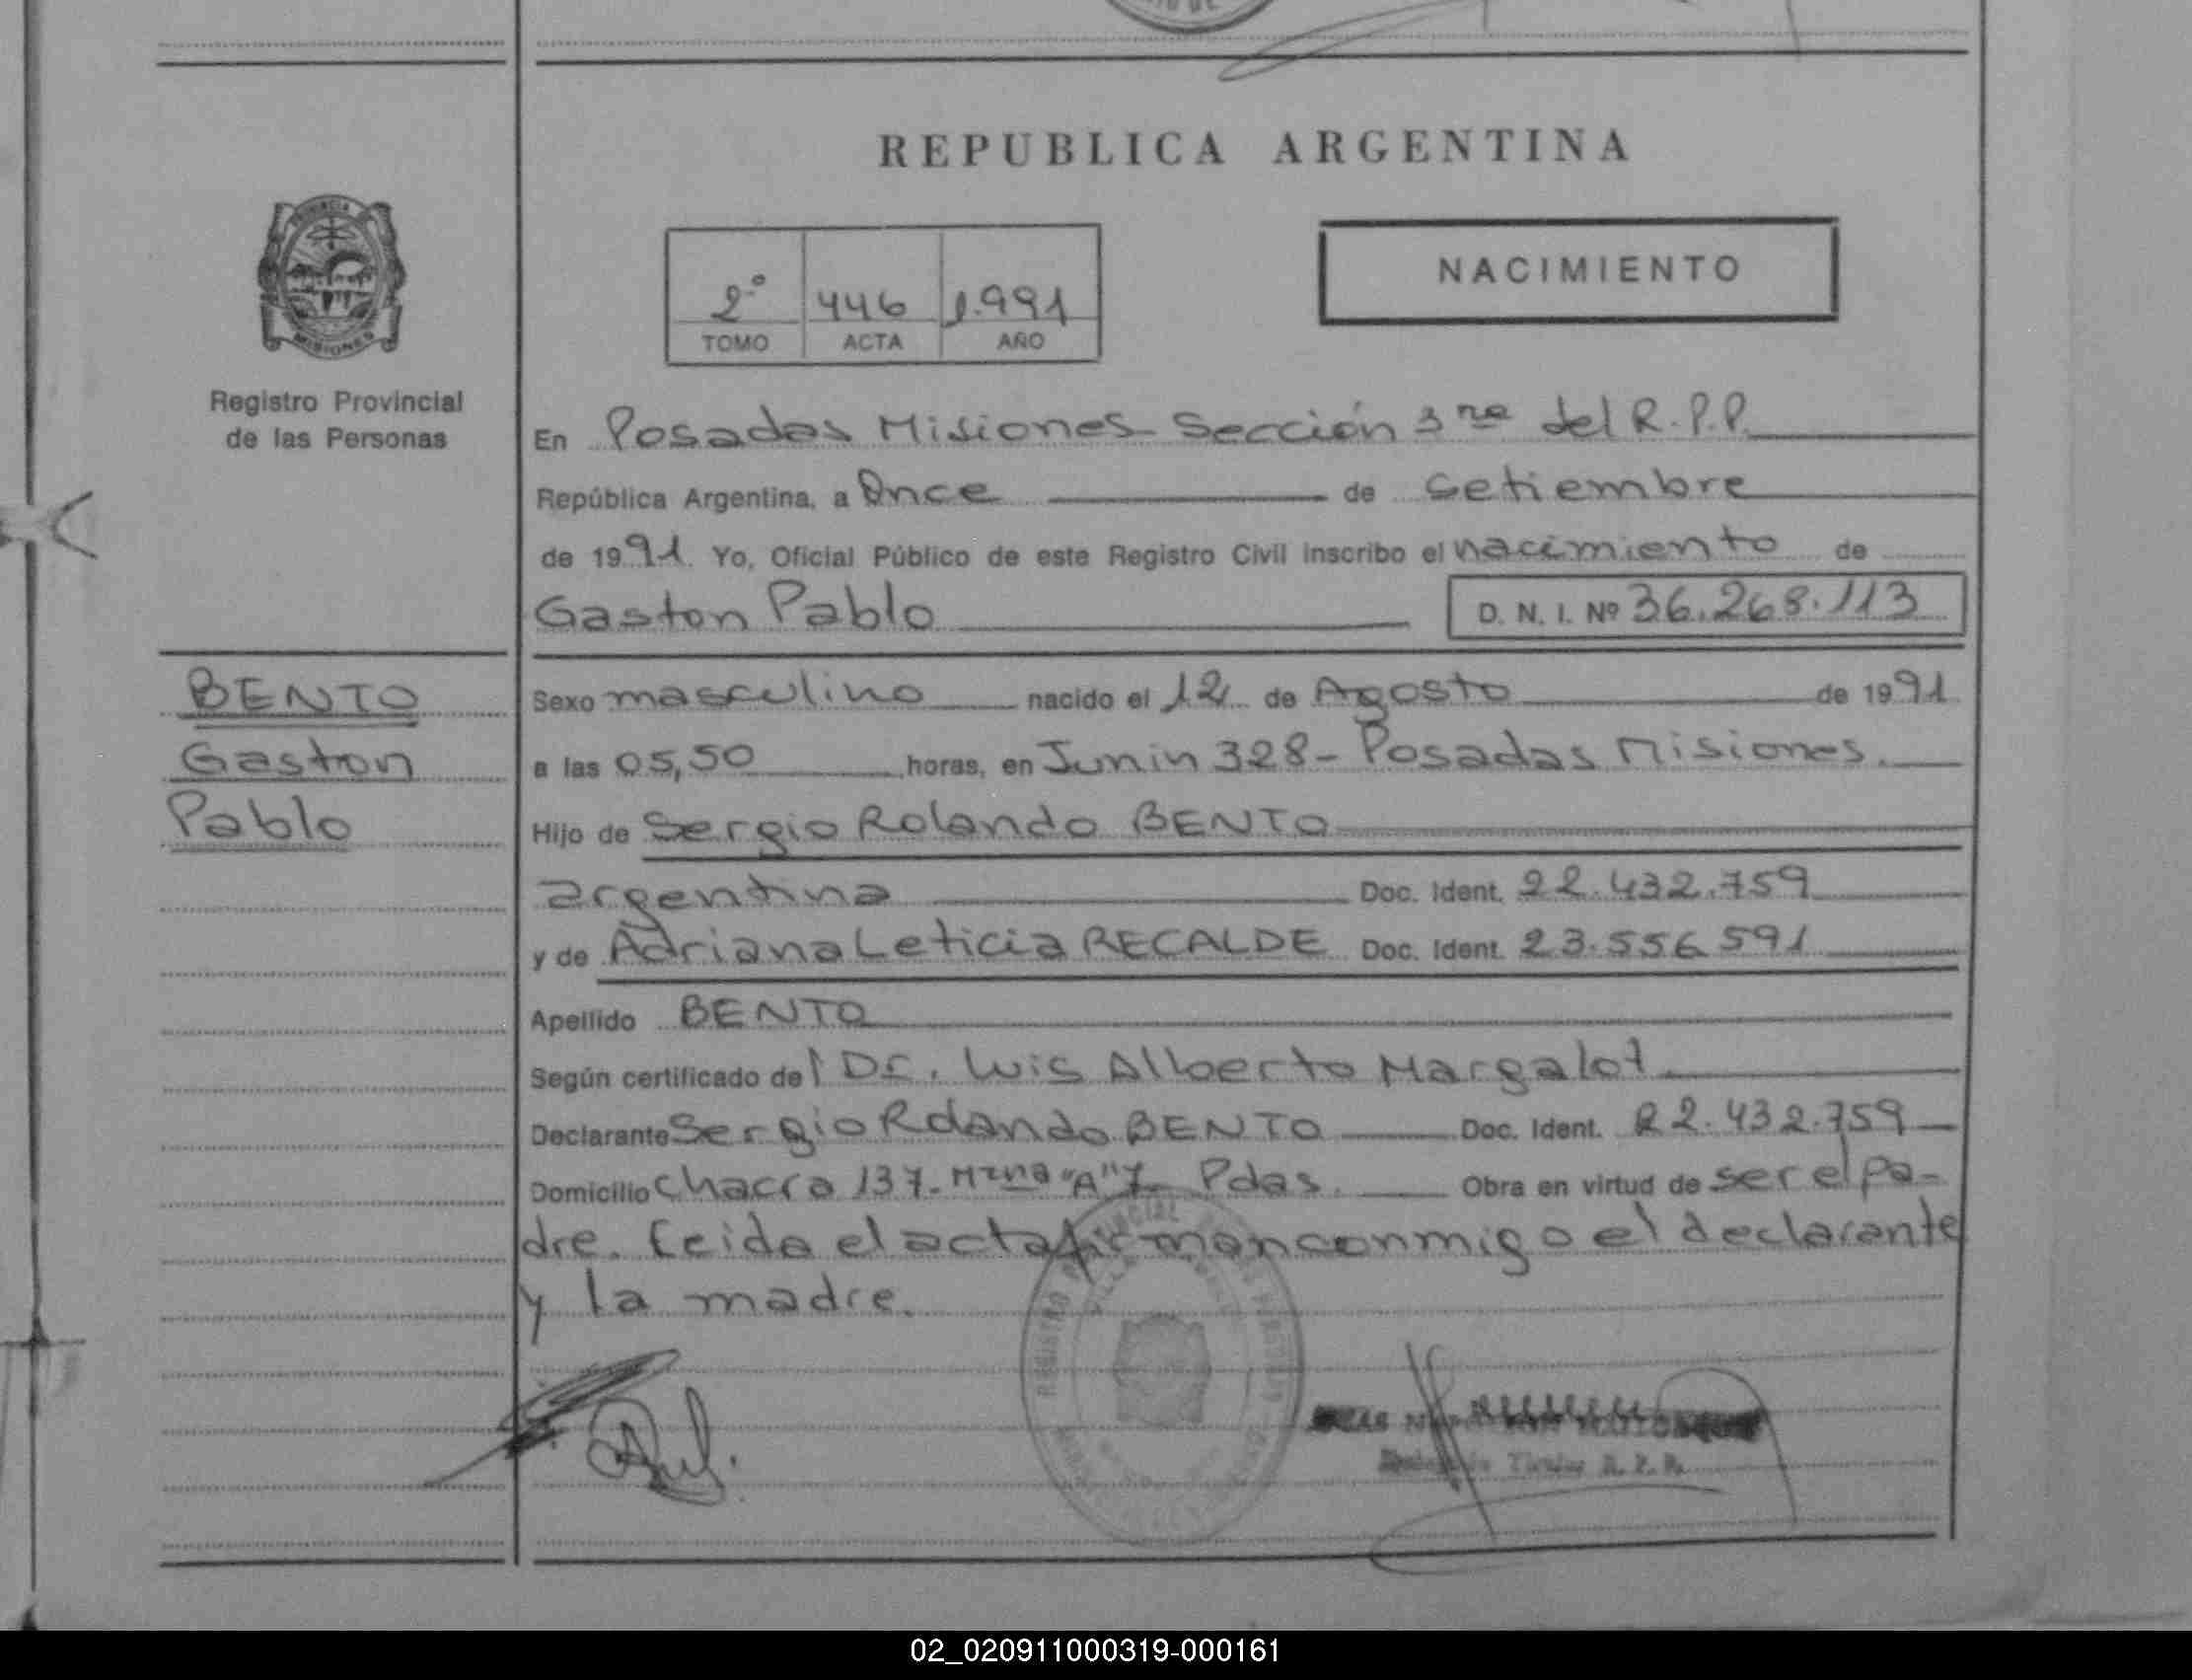 REPUBLICA ARGENTINA
PROVINCIA
MISIONES
Registro Provincial
de las Personas
NACIMIENTO
2º 446 1.991
TOMO ACTA AÑO
En Posadas Misiones Sección 3ra del R.P.P.
República Argentina, a Once de Setiembre
de 1991. Yo, Oficial Público de este Registro Civil inscribo el nacimiento de
Gaston Pablo D. N. I. Nº 36.268.113
BENTO
Gaston
Pablo
Sexo masculino nacido el 12 de Agosto de 1991
a las 05,50 horas, en Junin 328- Posadas Misiones.
Hijo de Sergio Rolando BENTO
argentina Doc. Ident. 22.432.759
y de Adriana Leticia RECALDE Doc. Ident. 23.556.591
Apellido BENTO
Según certificado del Dr. Luis Alberto Margalot.
Declarante Sergio Rolando BENTO Doc. Ident. 22.432.759
Domicilio Chacra 137- Mzna "A" 7- Pdas. Obra en virtud de ser el pa-
dre. Leida el acta firman conmigo el declarante
y la madre.
REGISTRO PROVINCIAL
Titular R. P. P.
02_020911000319-000161